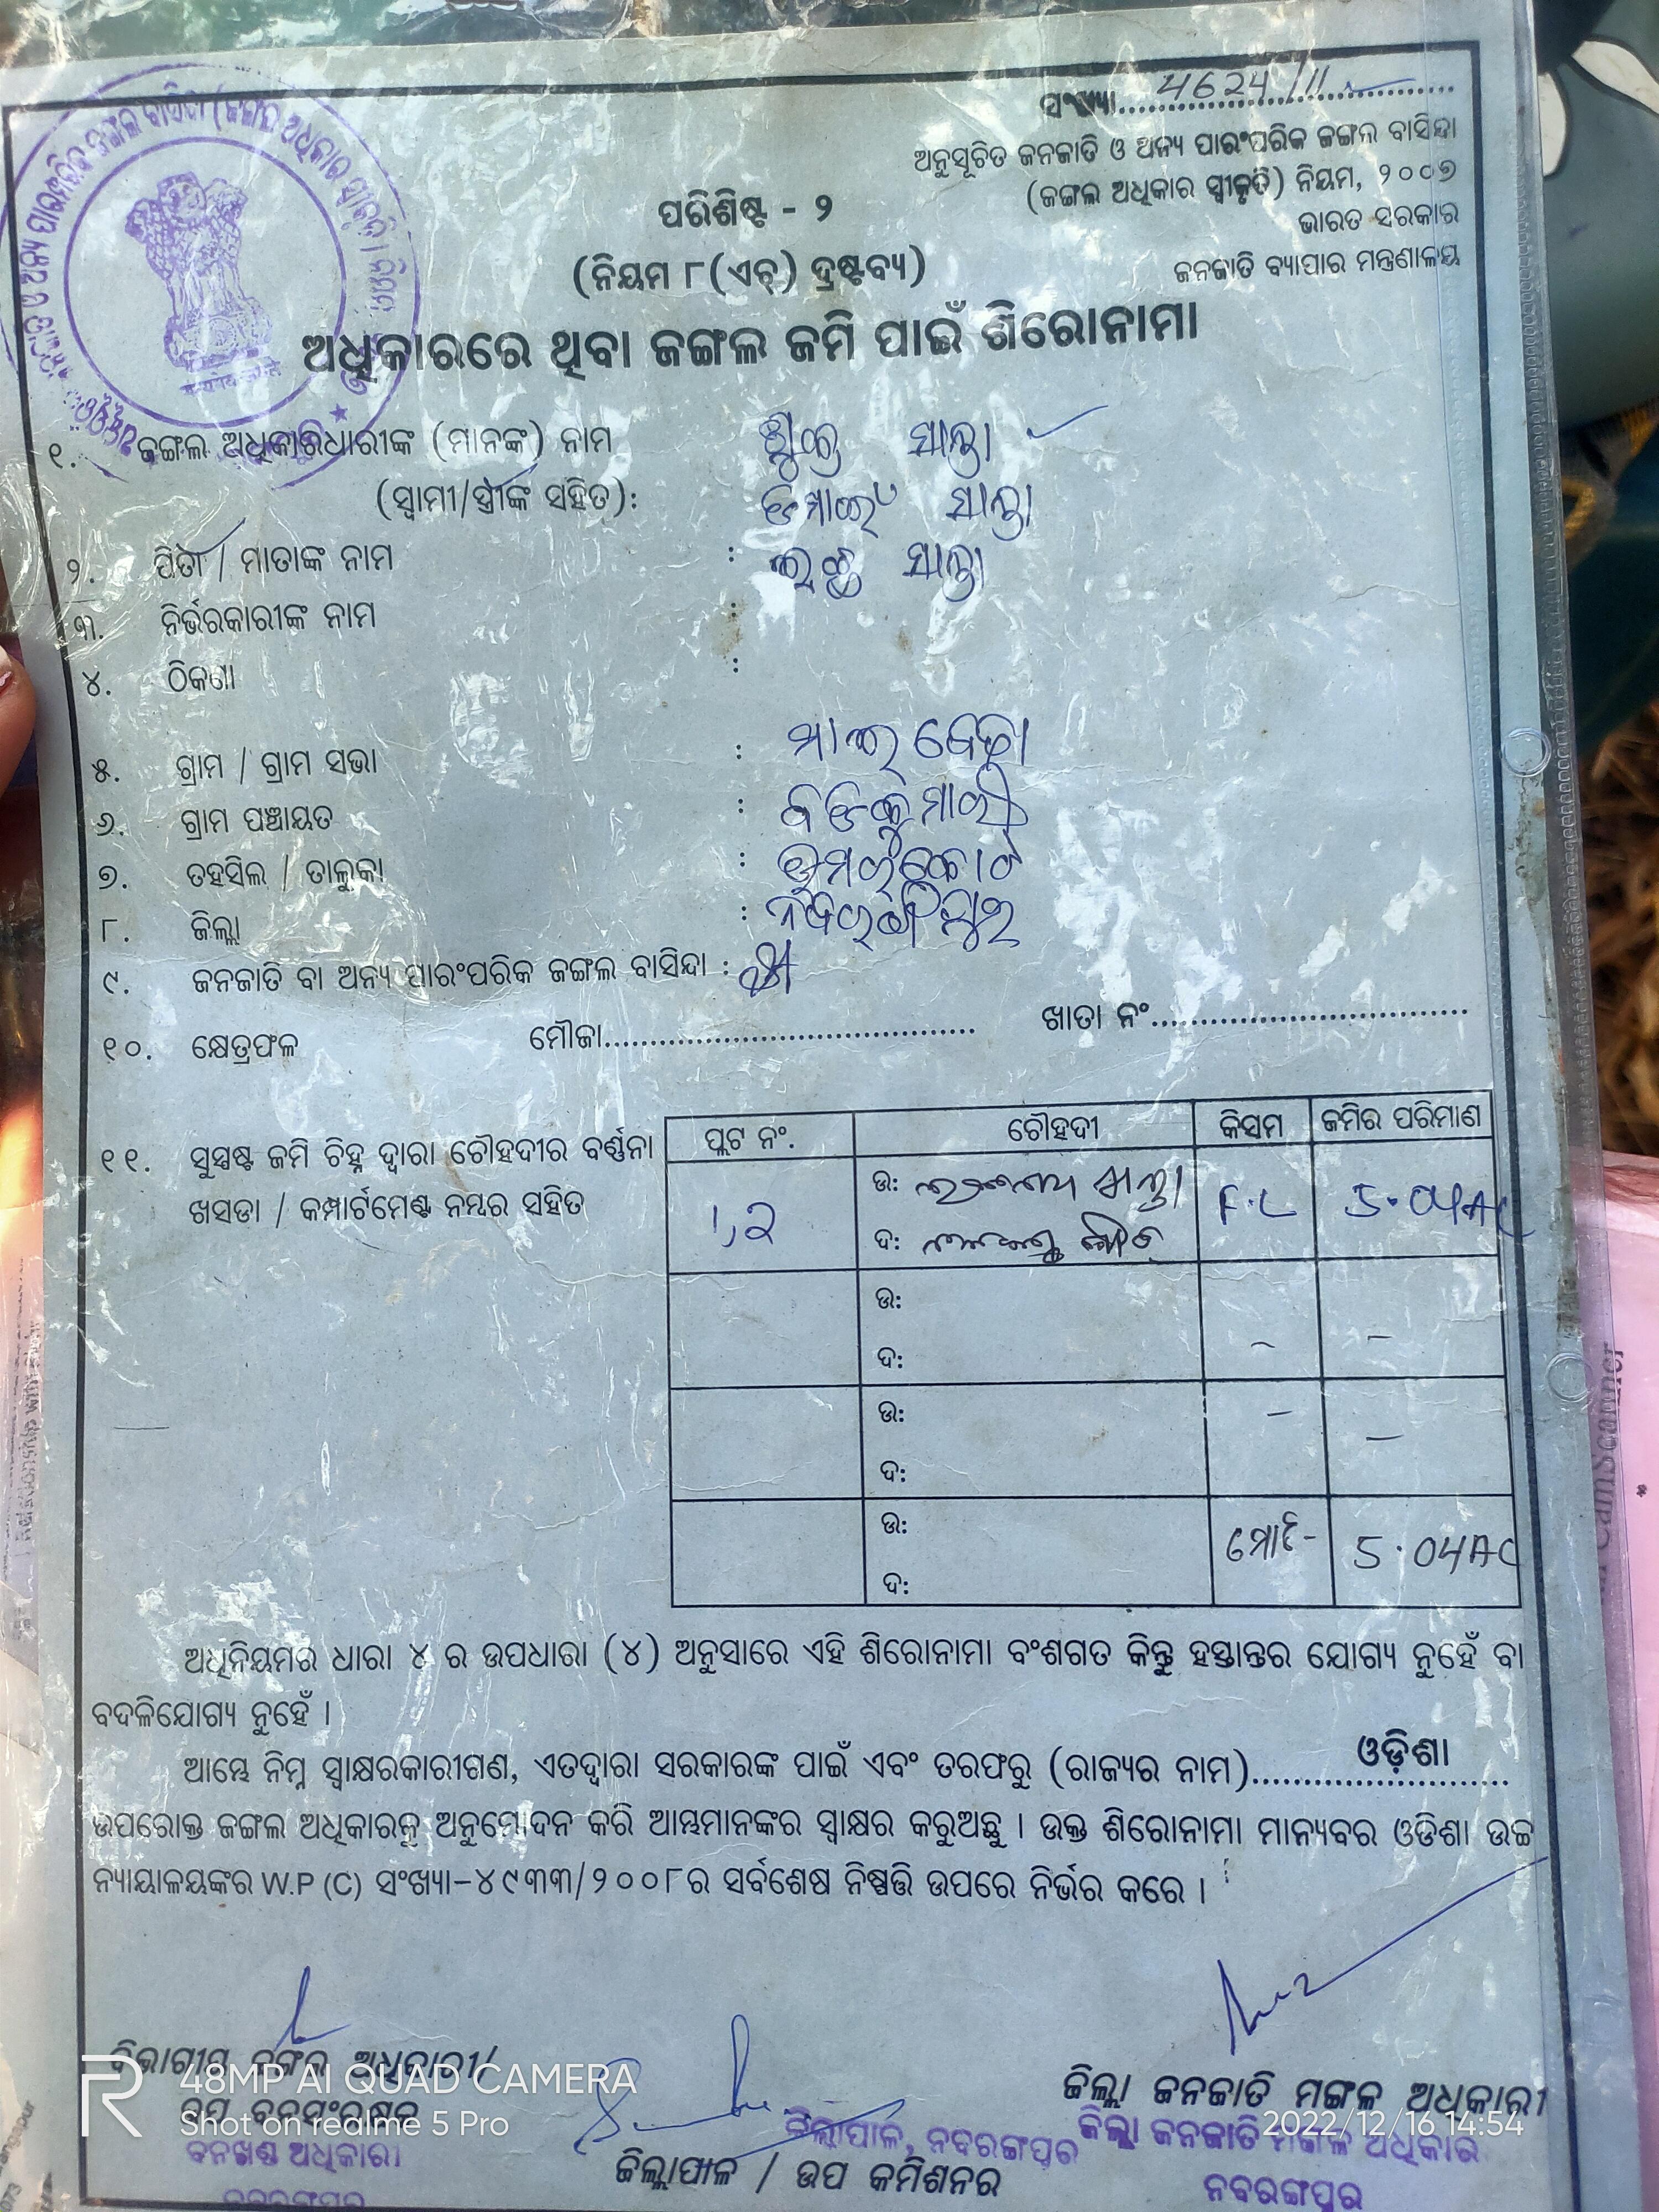 ସଂଖ୍ୟା 4624/11
ଅନୁସୂଚିତ ଜନଜାତି ଓ ଅନ୍ୟ ପାରଂପରିକ ଜଙ୍ଗଲ ବାସିନ୍ଦା
(ଜଙ୍ଗଲ ଅଧିକାର ସ୍ୱୀକୃତି) ନିୟମ, ୨୦୦୭
ଭାରତ ସରକାର
ଜନଜାତି ବ୍ୟାପାର ମନ୍ତ୍ରଣାଳୟ
ପରିଶିଷ୍ଟ - ୨
(ନିୟମ ୮(ଏଚ୍) ଦ୍ରଷ୍ଟବ୍ୟ)
ଅଧିକାରରେ ଥିବା ଜଙ୍ଗଲ ଜମି ପାଇଁ ଶିରୋନାମା
୧. ଜଙ୍ଗଲ ଅଧିକାରଧାରୀଙ୍କ (ମାନଙ୍କ) ନାମ
(ସ୍ୱାମୀ/ସ୍ତ୍ରୀଙ୍କ ସହିତ):
୨. ପିତା / ମାତାଙ୍କ ନାମ :
୩. ନିର୍ଭରକାରୀଙ୍କ ନାମ :
୪. ଠିକଣା :
୫. ଗ୍ରାମ / ଗ୍ରାମ ସଭା :
୬. ଗ୍ରାମ ପଞ୍ଚାୟତ : ବଡକୁମାରୀ
୭. ତହସିଲ / ତାଲୁକା : ଉମରକୋଟ
୮. ଜିଲ୍ଲା : ନବରଙ୍ଗପୁର
୯. ଜନଜାତି ବା ଅନ୍ୟ ପାରଂପରିକ ଜଙ୍ଗଲ ବାସିନ୍ଦା :
୧୦. କ୍ଷେତ୍ରଫଳ ମୌଜା ଖାତା ନଂ
୧୧. ସୁସ୍ପଷ୍ଟ ଜମି ଚିହ୍ନ ଦ୍ୱାରା ଚୌହଦୀର ବର୍ଣ୍ଣନା
ଖସଡା / କମ୍ପାର୍ଟମେଣ୍ଟ ନମ୍ବର ସହିତ
ପ୍ଲଟ ନଂ. ଚୌହଦୀ କିସମ ଜମିର ପରିମାଣ
1,2 ଉ: F.L 5.04AC
ଦ:
ଉ:
ଦ:
ଉ:
ଦ:
ଉ: ମୋଟ- 5.04AC
ଦ:
ଅଧିନିୟମର ଧାରା ୪ ର ଉପଧାରା (୪) ଅନୁସାରେ ଏହି ଶିରୋନାମା ବଂଶଗତ କିନ୍ତୁ ହସ୍ତାନ୍ତର ଯୋଗ୍ୟ ନୁହେଁ ବା
ବଦଳିଯୋଗ୍ୟ ନୁହେଁ ।
ଆମ୍ଭେ ନିମ୍ନ ସ୍ୱାକ୍ଷରକାରୀଗଣ, ଏତଦ୍ଦ୍ୱାରା ସରକାରଙ୍କ ପାଇଁ ଏବଂ ତରଫରୁ (ରାଜ୍ୟର ନାମ) ଓଡ଼ିଶା
ଉପରୋକ୍ତ ଜଙ୍ଗଲ ଅଧିକାରକୁ ଅନୁମୋଦନ କରି ଆମ୍ଭମାନଙ୍କର ସ୍ୱାକ୍ଷର କରୁଅଛୁ । ଉକ୍ତ ଶିରୋନାମା ମାନ୍ୟବର ଓଡିଶା ଉଚ୍ଚ
ନ୍ୟାୟାଳୟଙ୍କର W.P (C) ସଂଖ୍ୟା-୪୯୩୩/୨୦୦୮ର ସର୍ବଶେଷ ନିଷ୍ପତ୍ତି ଉପରେ ନିର୍ଭର କରେ ।
ବିଭାଗୀୟ ଜଙ୍ଗଲ ଅଧିକାରୀ/
ଉପ ବନସଂରକ୍ଷକ
ବନଖଣ୍ଡ ଅଧିକାରୀ
ନବରଙ୍ଗପୁର
ଜିଲ୍ଲାପାଳ, ନବରଙ୍ଗପୁର
ଜିଲ୍ଲାପାଳ / ଉପ କମିଶନର
ଜିଲ୍ଲା ଜନଜାତି ମଙ୍ଗଳ ଅଧିକାରୀ
ଜିଲ୍ଲା ଜନଜାତି ମଙ୍ଗଳ ଅଧିକାରୀ
ନବରଙ୍ଗପୁର
48MP AI QUAD CAMERA
Shot on realme 5 Pro
2022/12/16 14:54
CamScanner